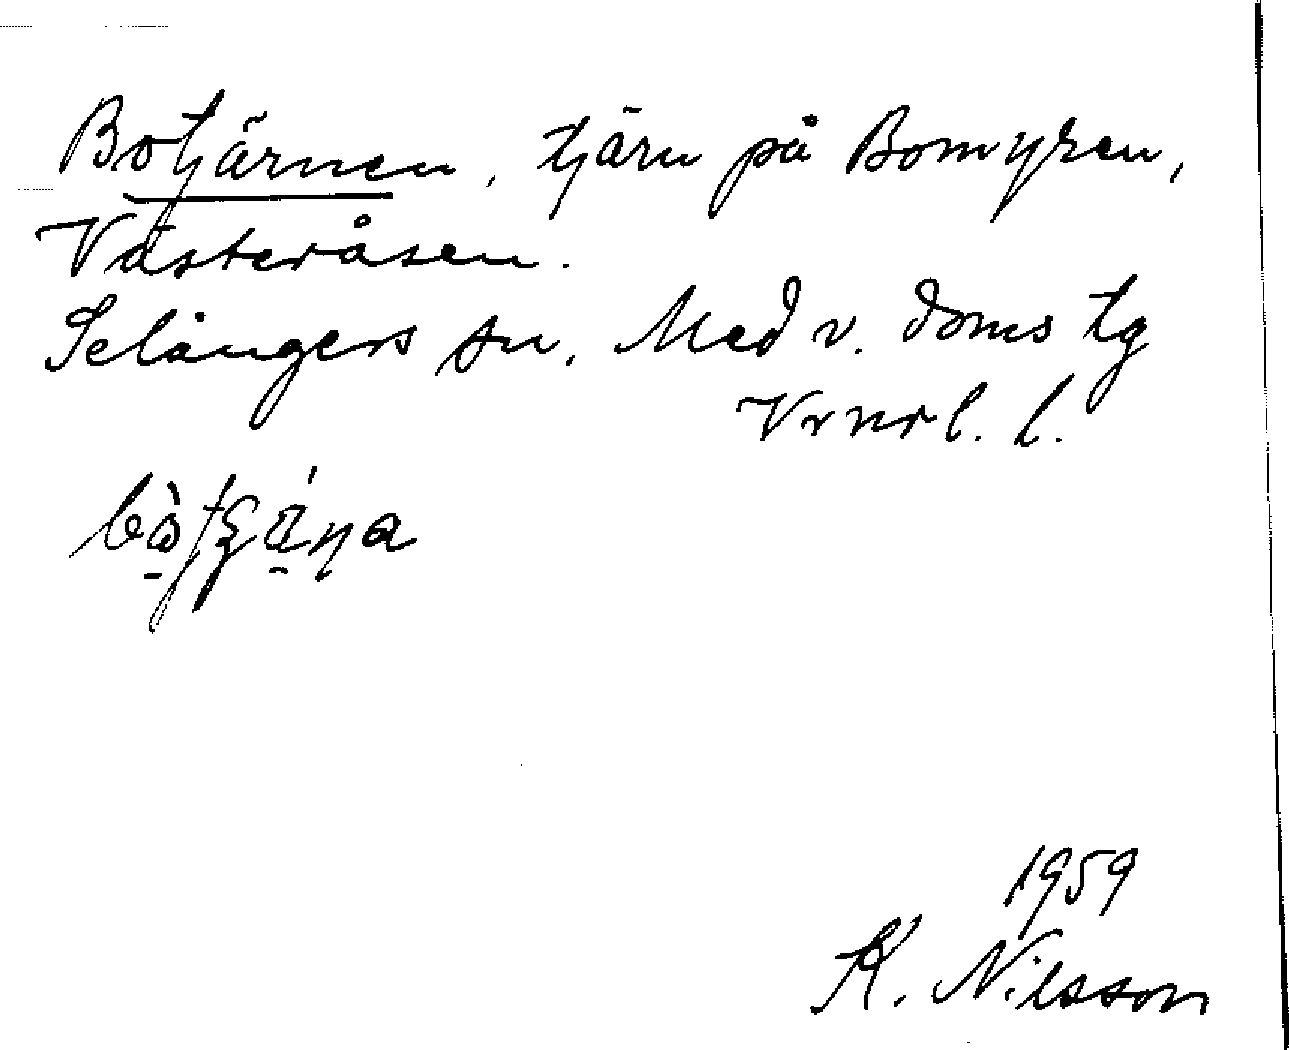 Botjärnen, tjärn på Bomyren,
Västeråsen.
Selångers sn. Med v. doms tg
Vrnrl. l.
1959
K. Nilsson